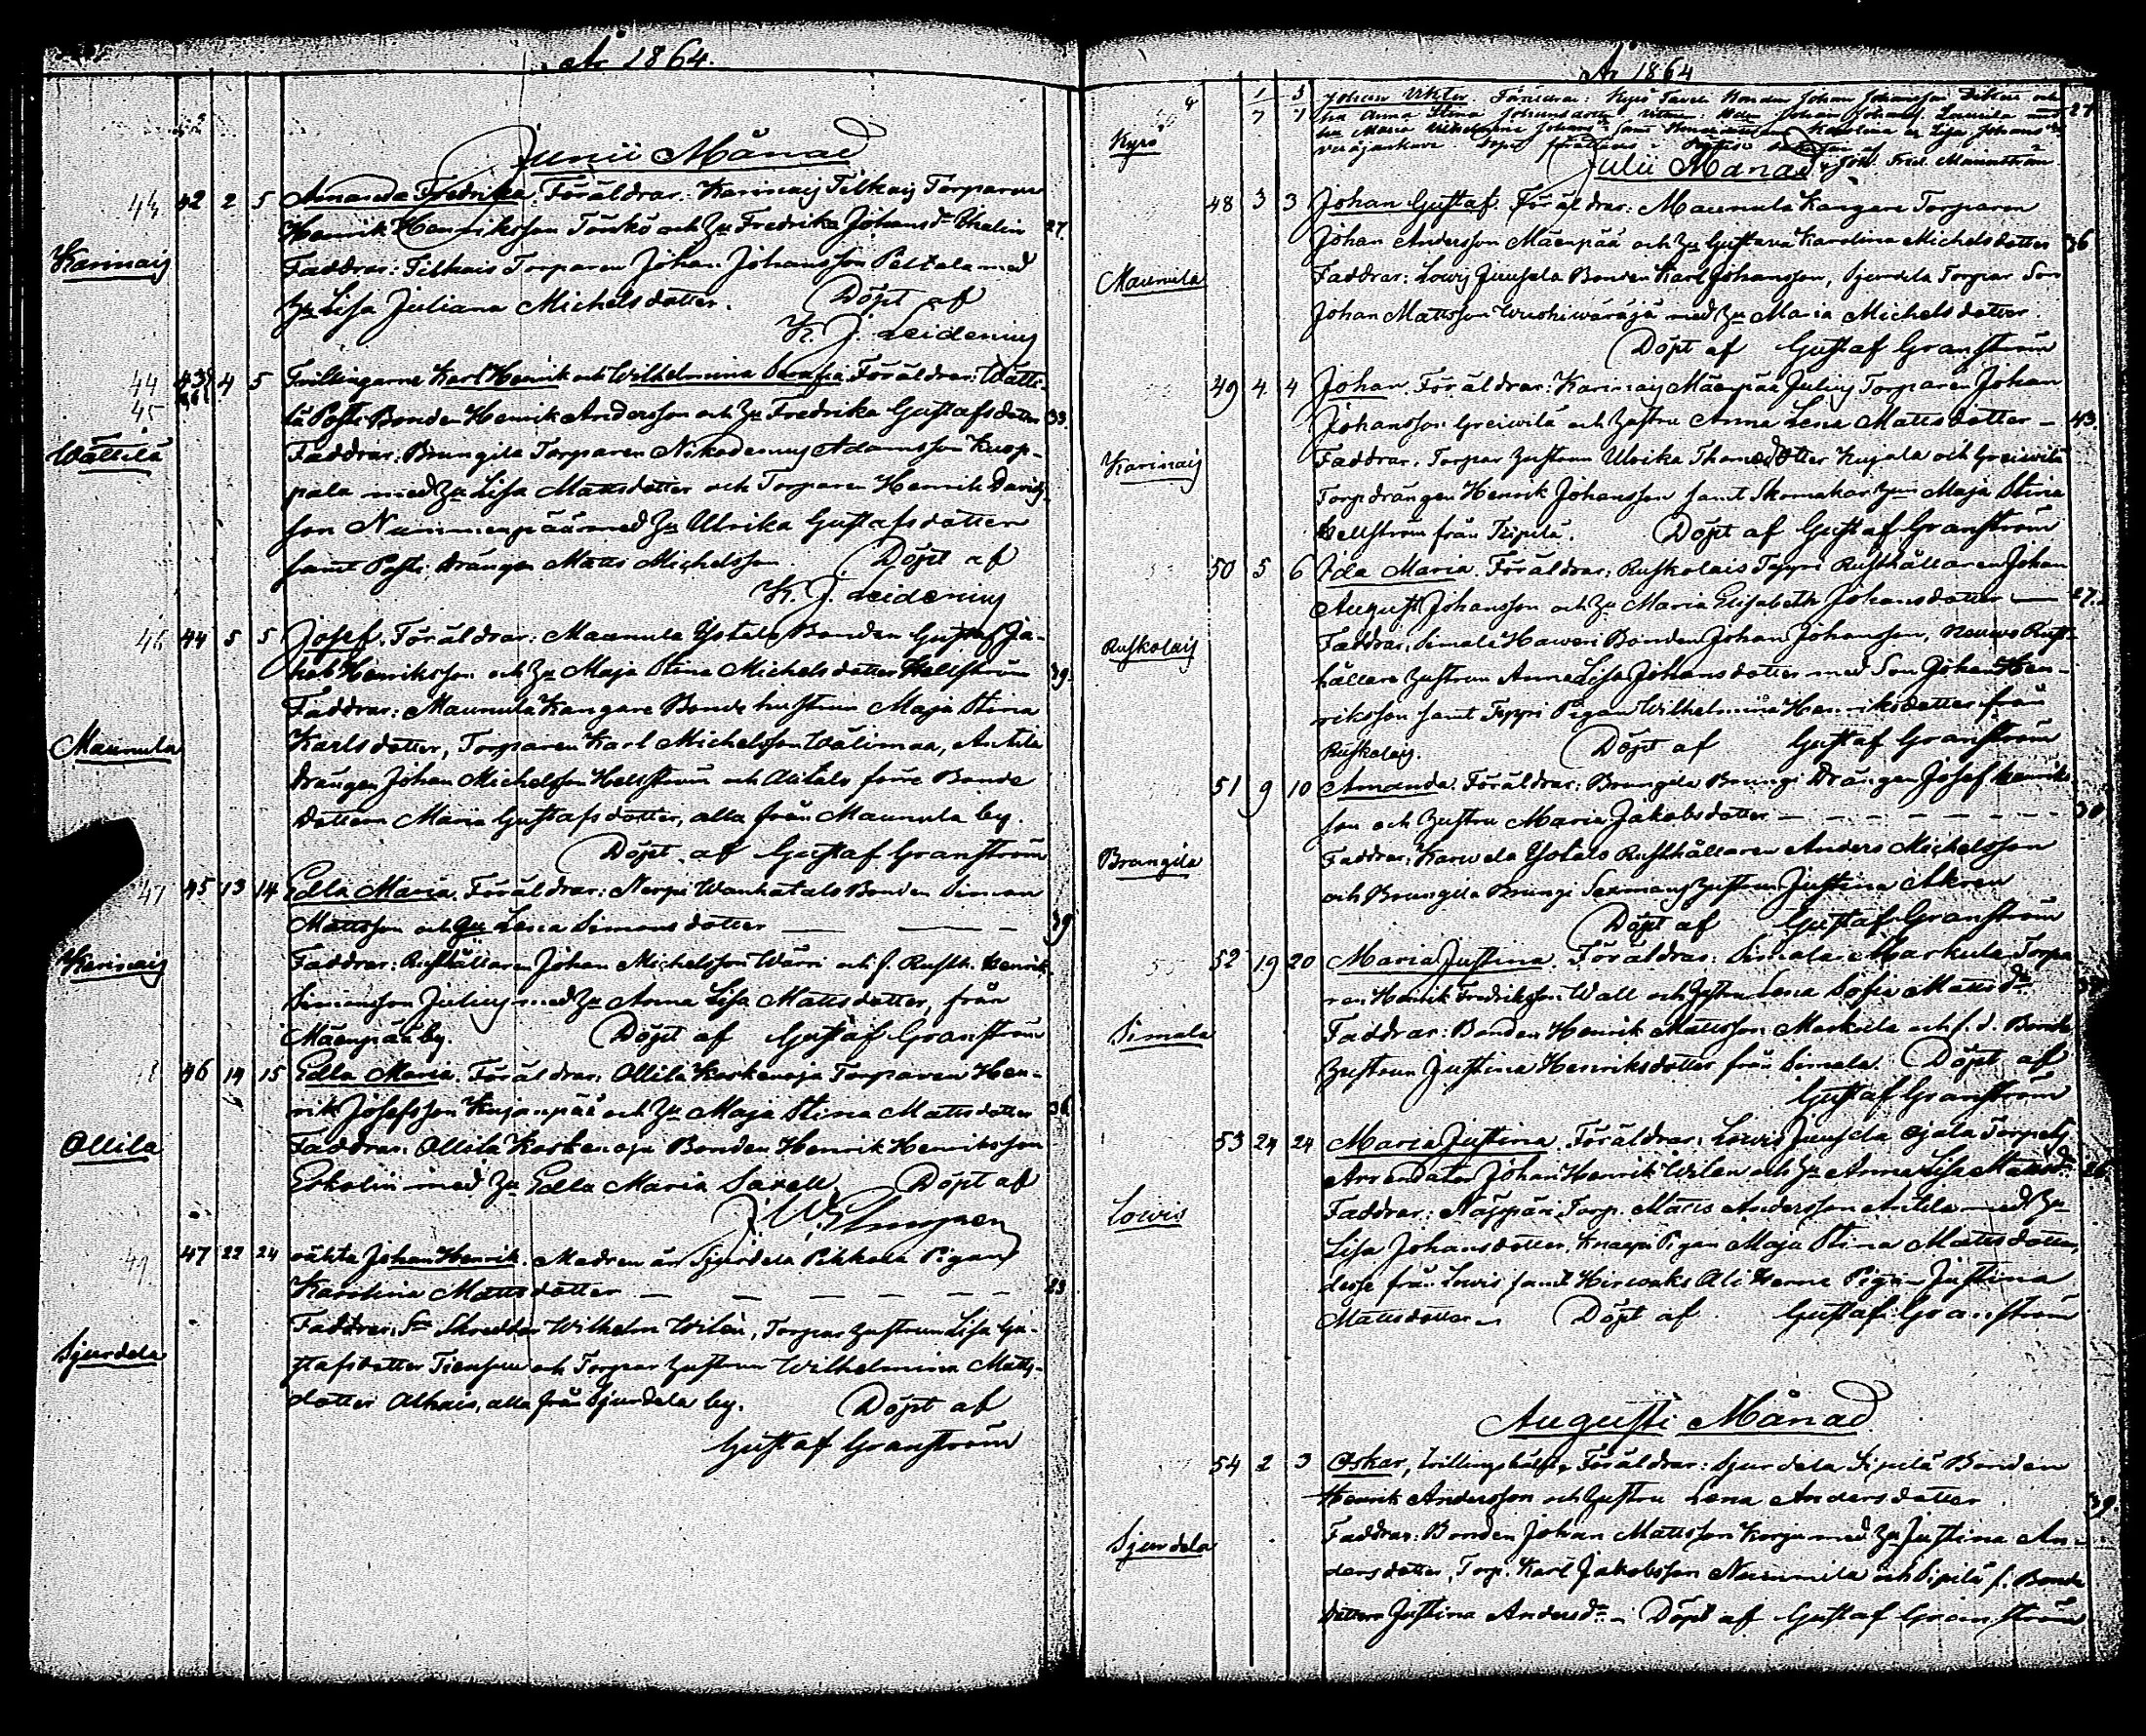 År 1864.
Junii Månad
44 42 2 5 Amanda Fredrika. Föräldrar: Karinais Tilkais Torparen
Henrik Henriksson Tönkö och Hu Fredrika Johansdr Thalin 27.
Karinais
Faddrar: Tilkais Torparen Johan Johansson Peltala med
Hu Lisa Juliana Michelsdotter. Döpt af
K. J. Leidenius
44 43 4 5 Tvillingarne Karl Henrik och Wilhelmina Serafia. Föräldrar: Wätti-
45
lä Posti Bonden Henrik Andersson och Hu Fredrika Gustafsdotter 33.
Wättilä
Faddrar: Brungila Torparen Nikodemus Adamsson Knop-
pala med Hu Lisa Mattsdotter och Torparen Henrik Davids-
son Nummenpää med Hu Ulrika Gustafsdotter
samt Posti drängen Matts Michelsson. Döpt af
K. J. Leidenius
46 44 5 5 Josef. Föräldrar: Maunula Yotala Bonden Gustaf Ja-
kob Henriksson och Hu Maja Stina Michelsdotter Hellström 39.
Faddrar: Maunula Kangare Bonde hustrun Maja Stina
Maunula
Karlsdotter, Torparen Karl Michelsson Wälimaa, Antila
drängen Johan Michelsson Hellström och Alitalo förre Bonde
dottern Maria Gustafsdotter, alla från Maunula by.
Döpt af Gustaf Granström
47 45 13 14 Edla Maria. Föräldrar: Nerpi Wanhatalo Bonden Simon
Mattsson och Hu Lena Simonsdotter — — — 39
Karinais
Faddrar: Rusthållaren Johan Michelsson Wärri och f. Rusth. Henrik
Simonsson Julius med Hu Anna Lisa Mattsdotter, från
Mäenpää by. Döpt af Gustaf Granström
46 14 15 Edla Maria. Föräldrar: Ollila Koskenoja Torparen Hen-
rik Josefsson Kujanpää och Hu Maja Stina Mattsdotter 36.
Ollila
Faddrar: Ollila Koskenoja Bonden Henrik Henriksson
Eskolin med Hu Edla Maria Saxell. Döpt af
49. 47 22 24 oäkta Johan Henrik. Modren är Sjurdela Pikkola Pigan
Karolina Mattsdotter — — — — — — 23
Faddrar: Skreddar Wilhelm Wilén, Torpar hustrun Lisa Gu-
Sjurdela
stafsdotter Tiensuu och Torpar hustrun Wilhelmina Matts-
dotter Alhais, alla från Sjurdela by. Döpt af
Gustaf Granström
År 1864
1/7 3/7 Johan Viktor. Föräldrar: Kyrö Bonden Johan Johansson och
Hu Anna Stina Johansdotter 27
Kyrö
Hu Maria Wilhelmina samt Karolina
Joh. Fred. Mannström
Julii Månad
48 3 3 Johan Gustaf. Föräldrar: Maunula Kangare Torparen
Johan Andersson Mäenpää och Hu Gustava Karolina Michelsdotter 36
Maunula
Faddrar: Lowis Juusela Bonden Karl Johansson, Sjurdela Torpar Son
Johan Mattsson Wuohiwäräjä med Hu Maria Michelsdotter.
Döpt af Gustaf Granström
49 4 4 Johan. Föräldrar: Karinais Mäenpää Julius Torparen Johan
Johansson Greiwilä och hustru Anna Lena Mattsdotter — 43.
Karinais
Faddrar: Torpar hustrun Ulrika Thomasdotter Kujala och Greiwilä
Torpdrängen Henrik Johansson samt Skomakar hun Maja Stina
Hellström från Sipilä. Döpt af Gustaf Granström
50 5 6 Ida Maria. Föräldrar: Ruskolais Teppi Rusthållaren Johan
August Johansson och Hu Maria Elisabeth Johansdotter — 27.
Ruskolais
Faddrar: Simala Haweri Bonden Johan Johansson, Rust-
hållare hustrun Anna Lisa Johansdotter med Son Johan Hen-
riksson samt Teppi Pigan Wilhelmina Henriksdotter från
Ruskolais. Döpt af Gustaf Granström
51 9 10 Amanda. Föräldrar: Brungila Brungi Drängen Josef Henriks-
son och hustru Maria Jakobsdotter — — — — — — 30
Brungila
Faddrar: Karwela Yotalo Rusthållaren Anders Michelsson
och Brungila Brungi Sexmans hustrun Justina Akren
Döpt af Gustaf Granström
52 19 20 Maria Justina. Föräldrar: Simala Markula Torpa-
ren Henrik Fredriksson Wall och hustru Lena Sofia Mattsdr
Simala
Faddrar: Bonden Henrik Mattsson Markula och f. d. Bonde
hustrun Justina Henriksdotter från Simala. Döpt af
Gustaf Granström
53 24 24 Maria Justina. Föräldrar: Lowis Juusela Ojala Torpets
Arrendator Johan Henrik Wilen och Hu Anna Lisa Mattsdr 26.
Lowis
Faddrar: Näppäri Torp. Matts Andersson Anttila med Hu
Lisa Johansdotter, Knaapi Pigan Maja Stina Mattsdotter,
desse från Lowis samt Hirwoks Ali Herne Pigan Justina
Mattsdotter. Döpt af Gustaf Granström
Augusti Månad
54 2 3 Oskar, tvillingshälft, Föräldrar: Sjurdela Sipilä Bonden
Henrik Andersson och Hustru Lena Andersdotter 39.
Sjurdela
Faddrar: Bonden Johan Mattsson Korju med Hu Justina An-
dersdotter, Torp. Karl Jakobsson Nummila och Sipilä f. Bonde
dottern Justina Andersdr. Döpt af Gustaf Granström